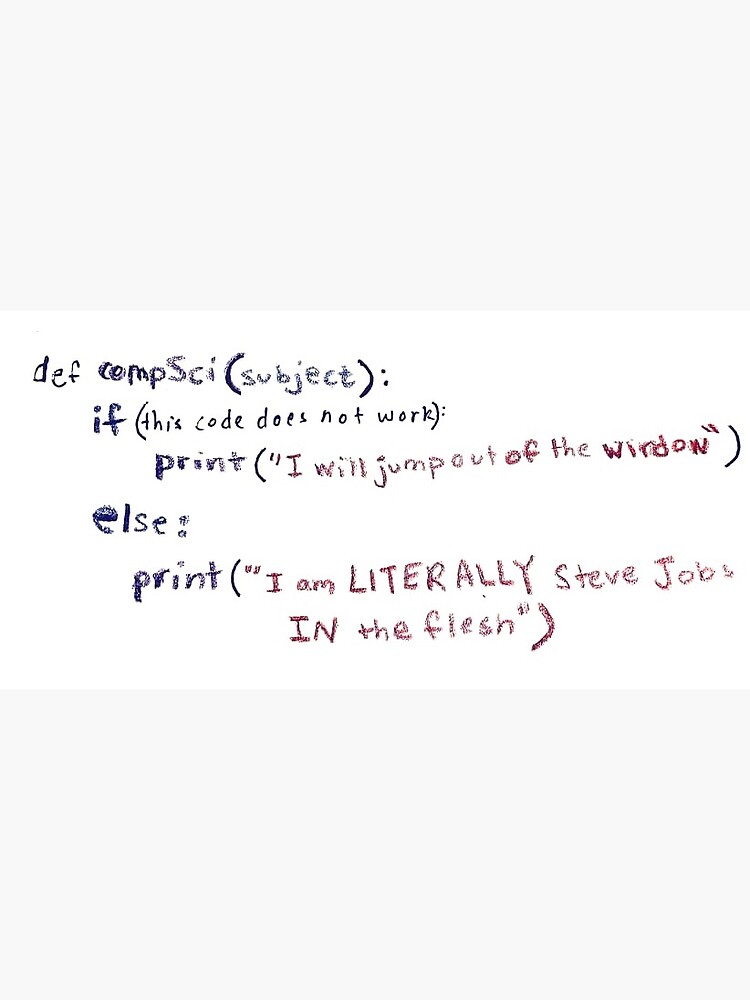 def compSci(subject):
if (this code does not work):
print("I will jump out of the window")
else:
print(""I am LITERALLY Steve Jobs
IN the flesh")